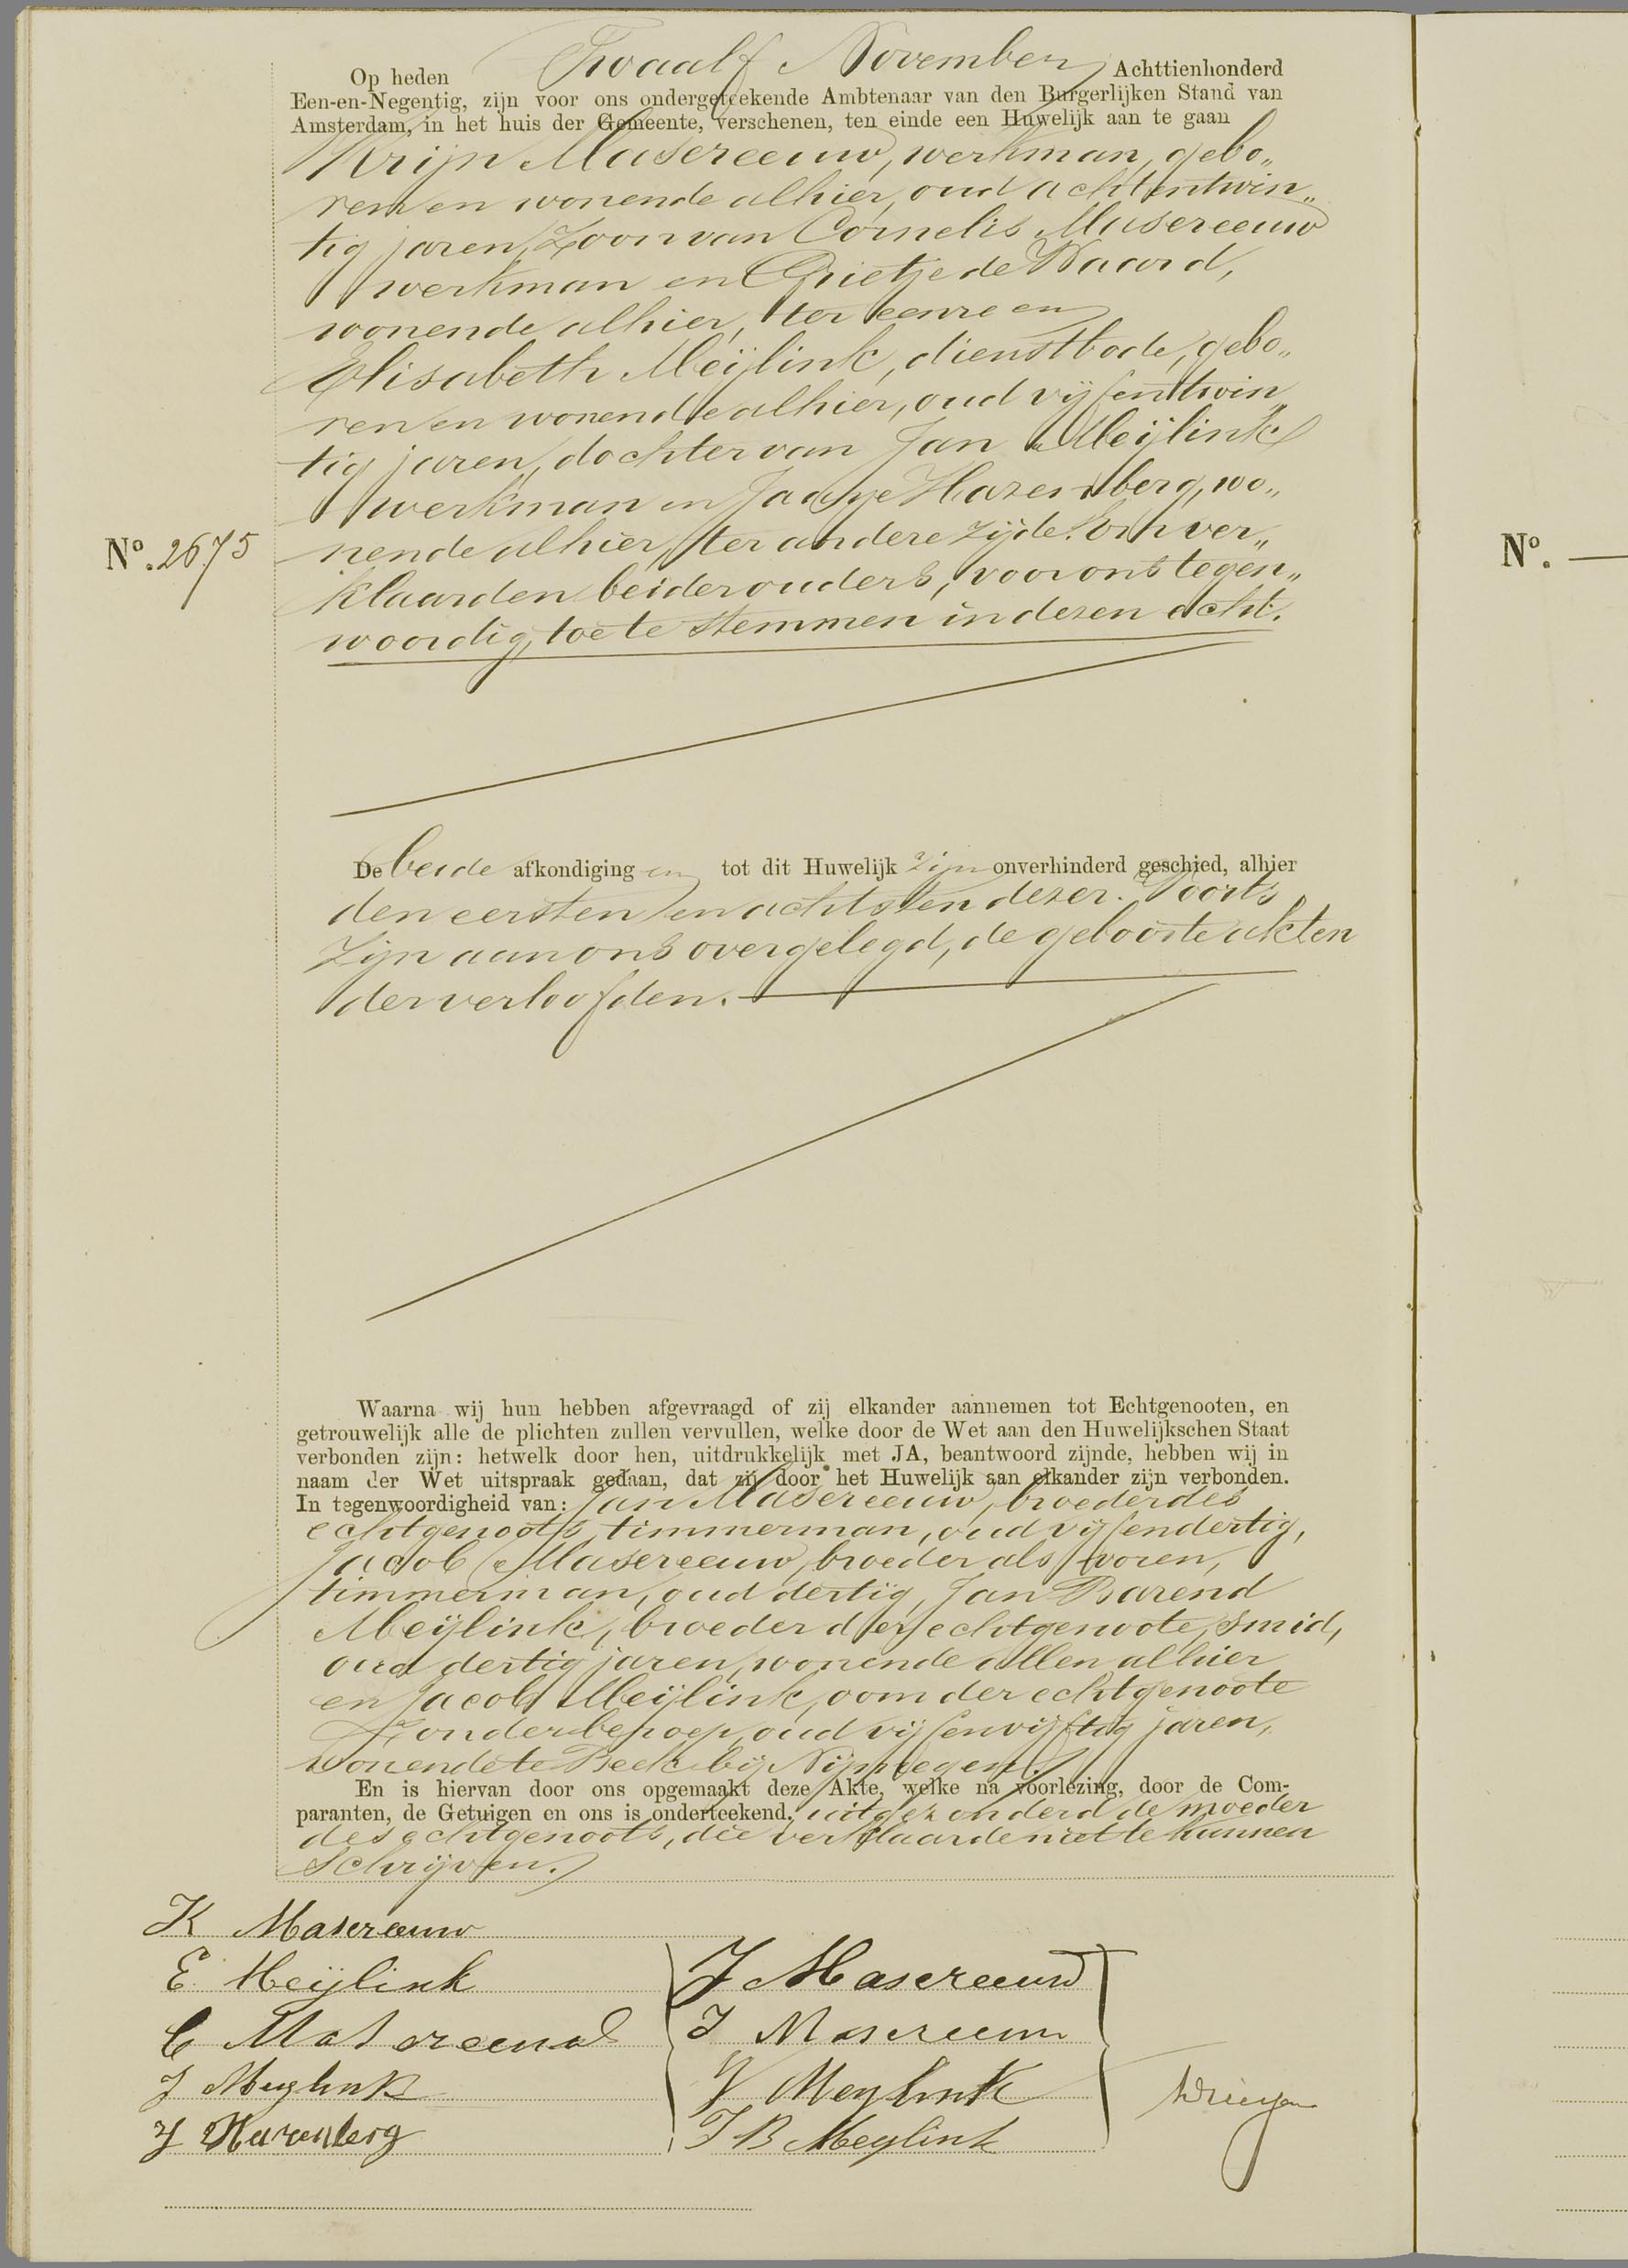 Op heden Twaalf November Achttienhonderd
Een-en-Negentig, zijn voor ons ondergeteekende Ambtenaar van den Burgerlijken Stand van
Amsterdam, in het huis der Gemeente, verschenen, ten einde een Huwelijk aan te gaan
Krijn Masereeuw, werkman, gebo„
ren en wonende alhier, oud achtentwin„
tig jaren, Zoon van Cornelis Masereeuw
werkman en Grietje de Waard,
wonende alhier, ter eenre en
Elisabeth Meijlink, dienstbode, gebo„
ren en wonende alhier, oud vijfentwin„
tig jaren, dochter van Jan Meijlink
werkman en Jaapje Hazenberg, wo„
No. 2675
nende alhier, ter andere zijde. En ver„
klaarden beider ouders, voor ons tegen„
woordig, toe te stemmen in dezen echt.
No.
De beide afkondigingen tot dit Huwelijk zijn onverhinderd geschied, alhier
den eersten en achtsten dezer. Voorts
zijn aan ons overgelegd, de geboorteakten
der verloofden.
Waarna wij hun hebben afgevraagd of zij elkander aannemen tot Echtgenooten, en
getrouwelijk alle de plichten zullen vervullen, welke door de Wet aan den Huwelijkschen Staat
verbonden zijn: hetwelk door hen, uitdrukkelijk met JA, beantwoord zijnde, hebben wij in
naam der Wet uitspraak gedaan, dat zij door het Huwelijk aan elkander zijn verbonden.
In tegenwoordigheid van: Jan Masereeuw, broeder des
echtgenoots, timmerman, oud vijfendertig,
Jacob Masereeuw, broeder als voren,
timmerman, oud dertig, Jan Barend
Meijlink, broeder der echtgenoote, smid,
oud dertig jaren, wonende allen alhier
en Jacob Meijlink, oom der echtgenoote
Zonder beroep, oud vijfenvijftig jaren,
wonende te Beek bij Nijmegen.
En is hiervan door ons opgemaakt deze Akte, welke na voorlezing, door de Com-
paranten, de Getuigen en ons is onderteekend, uitgezonderd de moeder
des echtgenoots, die verklaarde niet te kunnen
Schrijven.
K Masereeuw
E Meijlink
C Masereeuw
J Meylink
J Hazenberg
J Masereeuw
J Masereeuw
J Meylink
J B Meylink